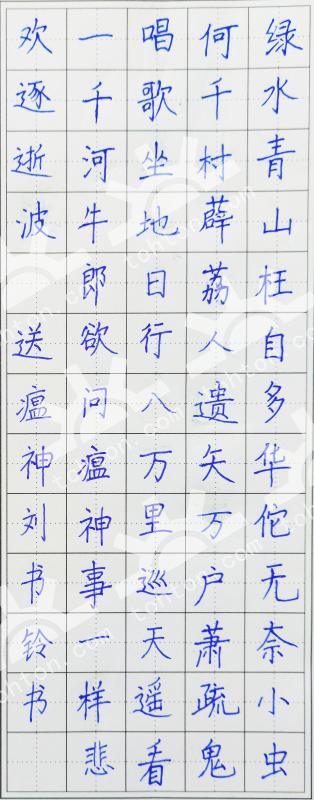 绿水青山枉自多华佗无奈小虫
何千村薜荔人遗矢万户萧疏鬼
唱歌坐地日行八万里巡天遥看
一千河牛郎欲问瘟神事一样悲
欢逐逝波 送瘟神刘书铃书
tohton.com